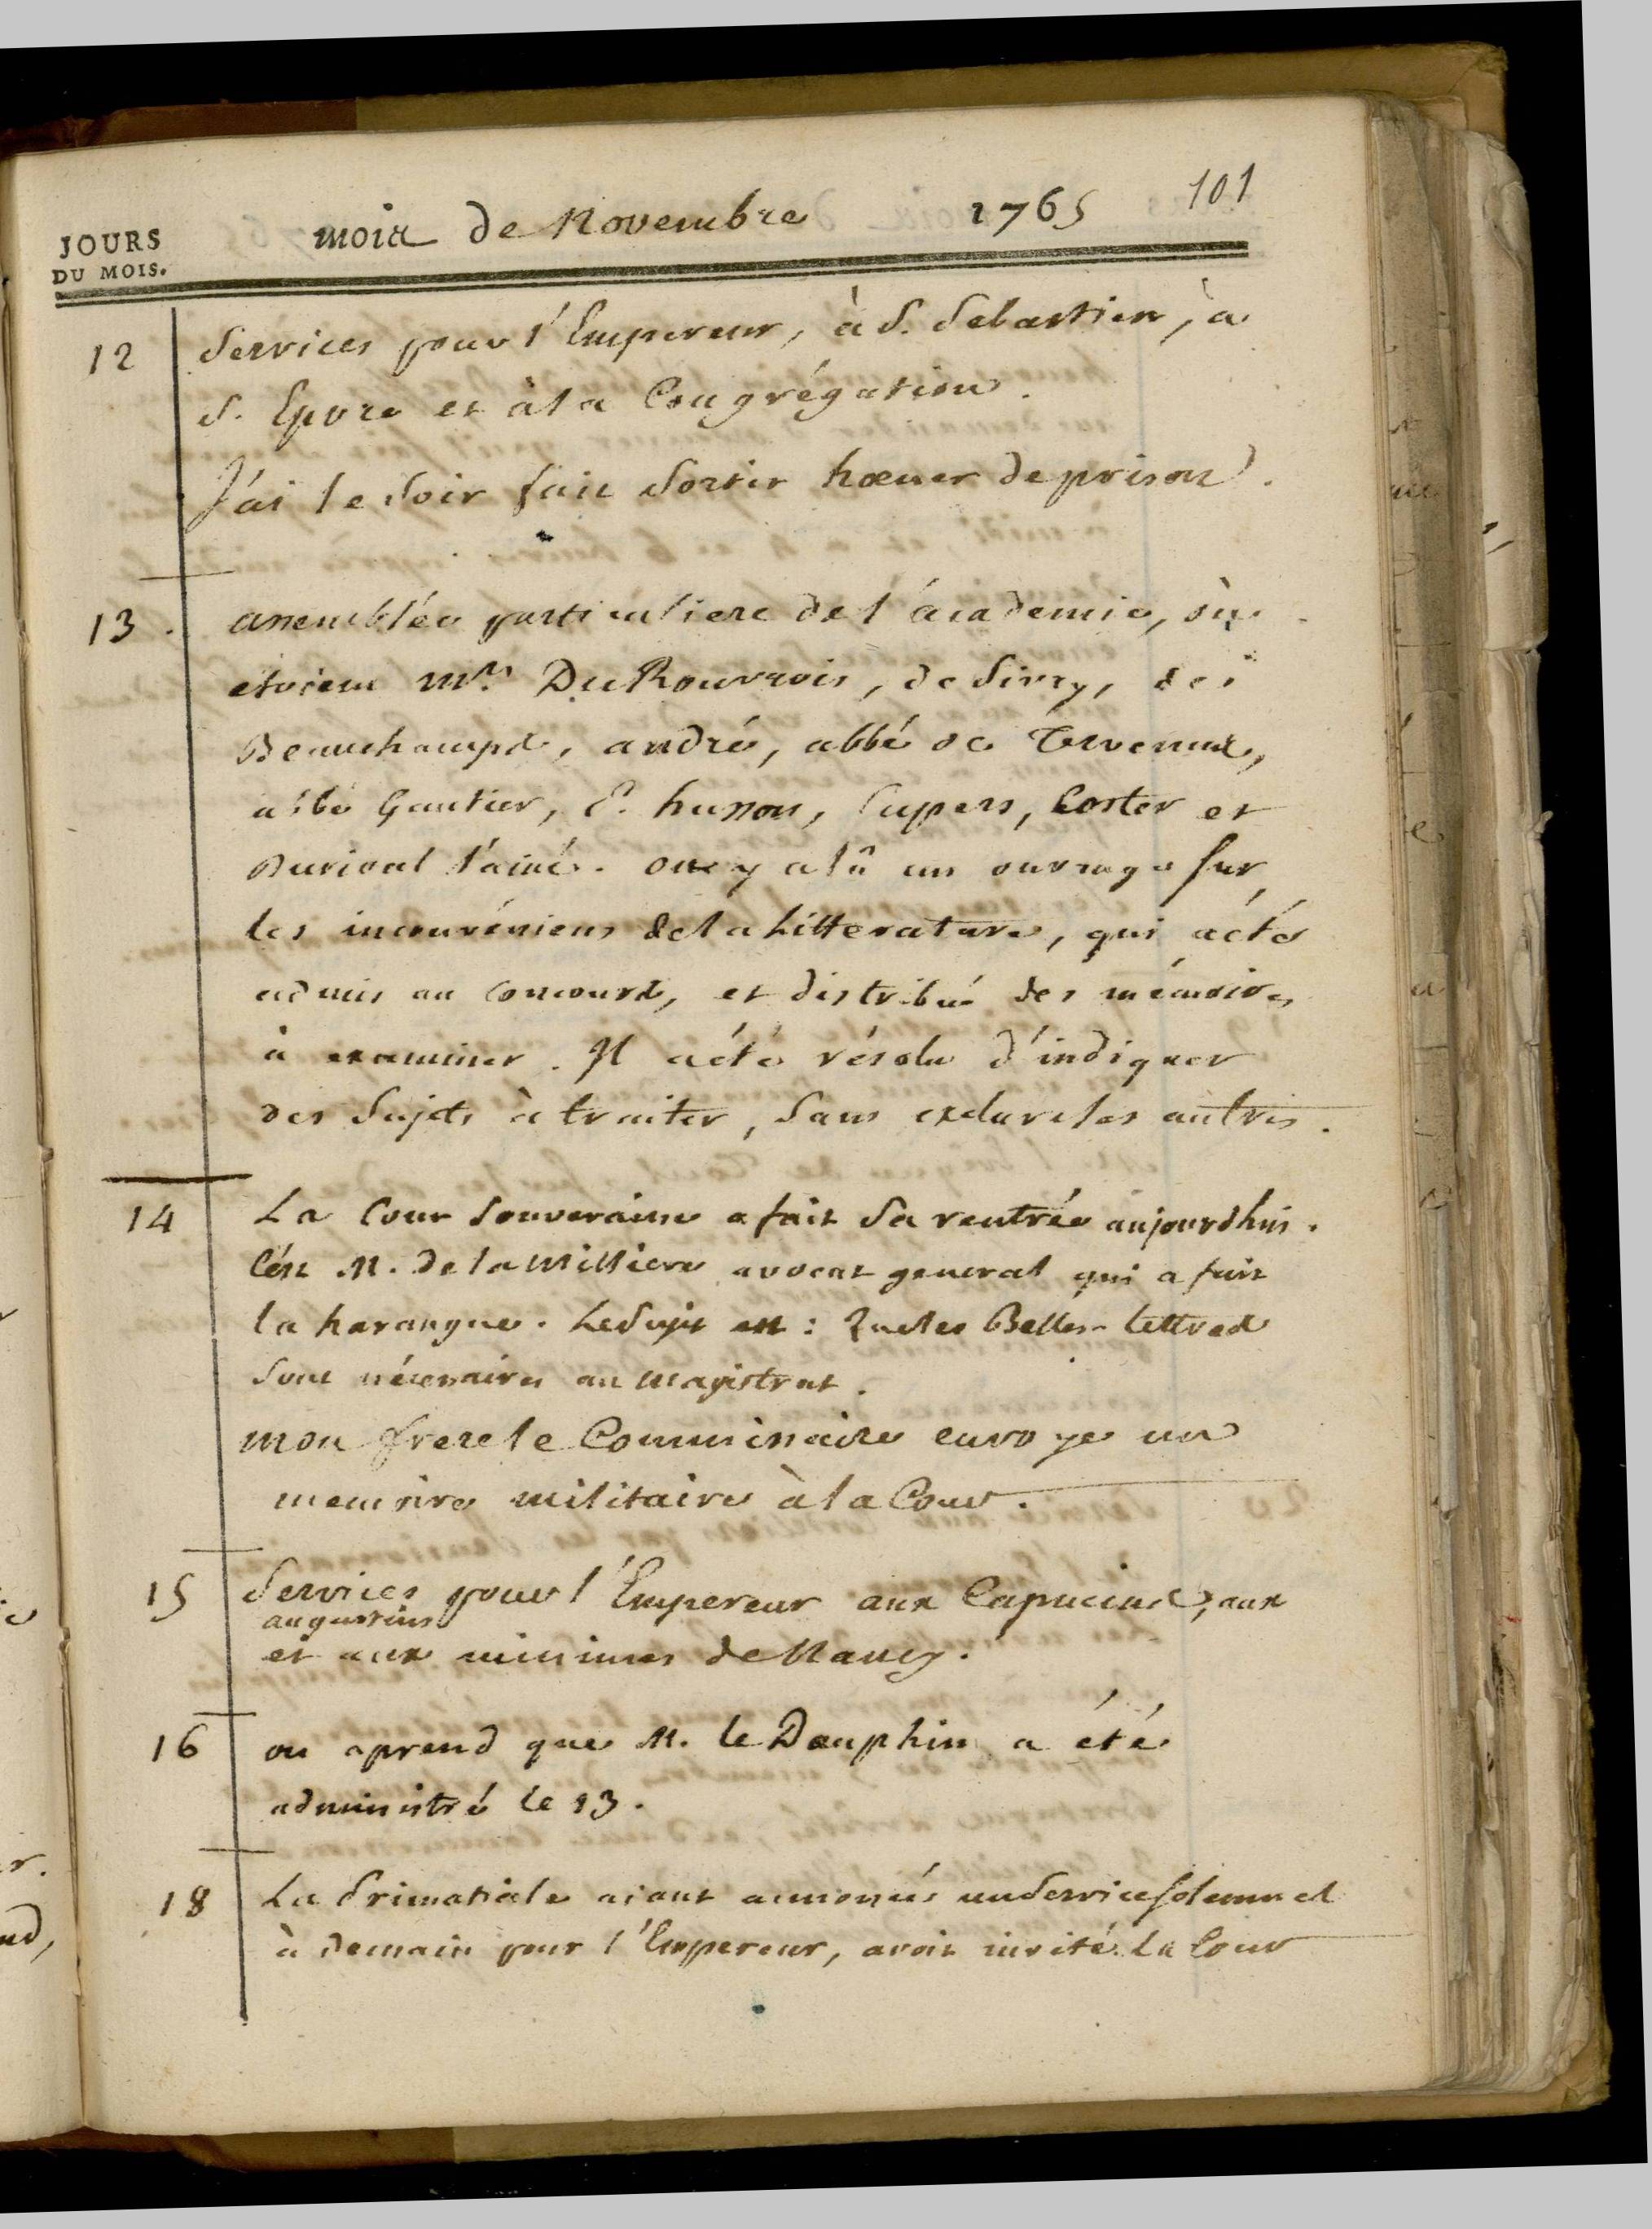 101
mois de Novembre 1765
JOURS
DU MOIS.
12 Services pour l'Empereur, à S. Sebastien, à
S. Epvre et à la Congrégation.
J'ai le soir fait sortir hœner de prison.
13. assemblée particuliere de l'académie, où
etoient Mrs. Du Rouvrois, de Sivry, de
Beauchamps, andré, abbé de Tervenus,
abbé Gautier, P. husson, Cupers, Coster et
Durival l'ainé. on y a lû un ouvrage sur
les inconvéniens de la Litterature, qui a été
admis au concours, et distribué des mémoires
à examiner. Il a été résolu d'indiquer
des sujets à traiter, sans exclure les autres.
14 La Cour Souveraine a fait sa rentrée aujourdhui.
C'est M. de la Milliere avocat general qui a fait
la harangue. Le sujet est: Que les Belles-lettres
sont nécessaires au magistrat.
mon frere le Commissaire envoye un
memoire militaire à la Cour.
15 Services pour l'Empereur aux Capucins, aux
augustins
et aux minimes de Nancy.
16 on aprend que M. le Dauphin a été
administré le 13.
18 La Primatiale aiant annoncés un Service solemnel
à demain pour l'Empereur, avoit invité la Cour